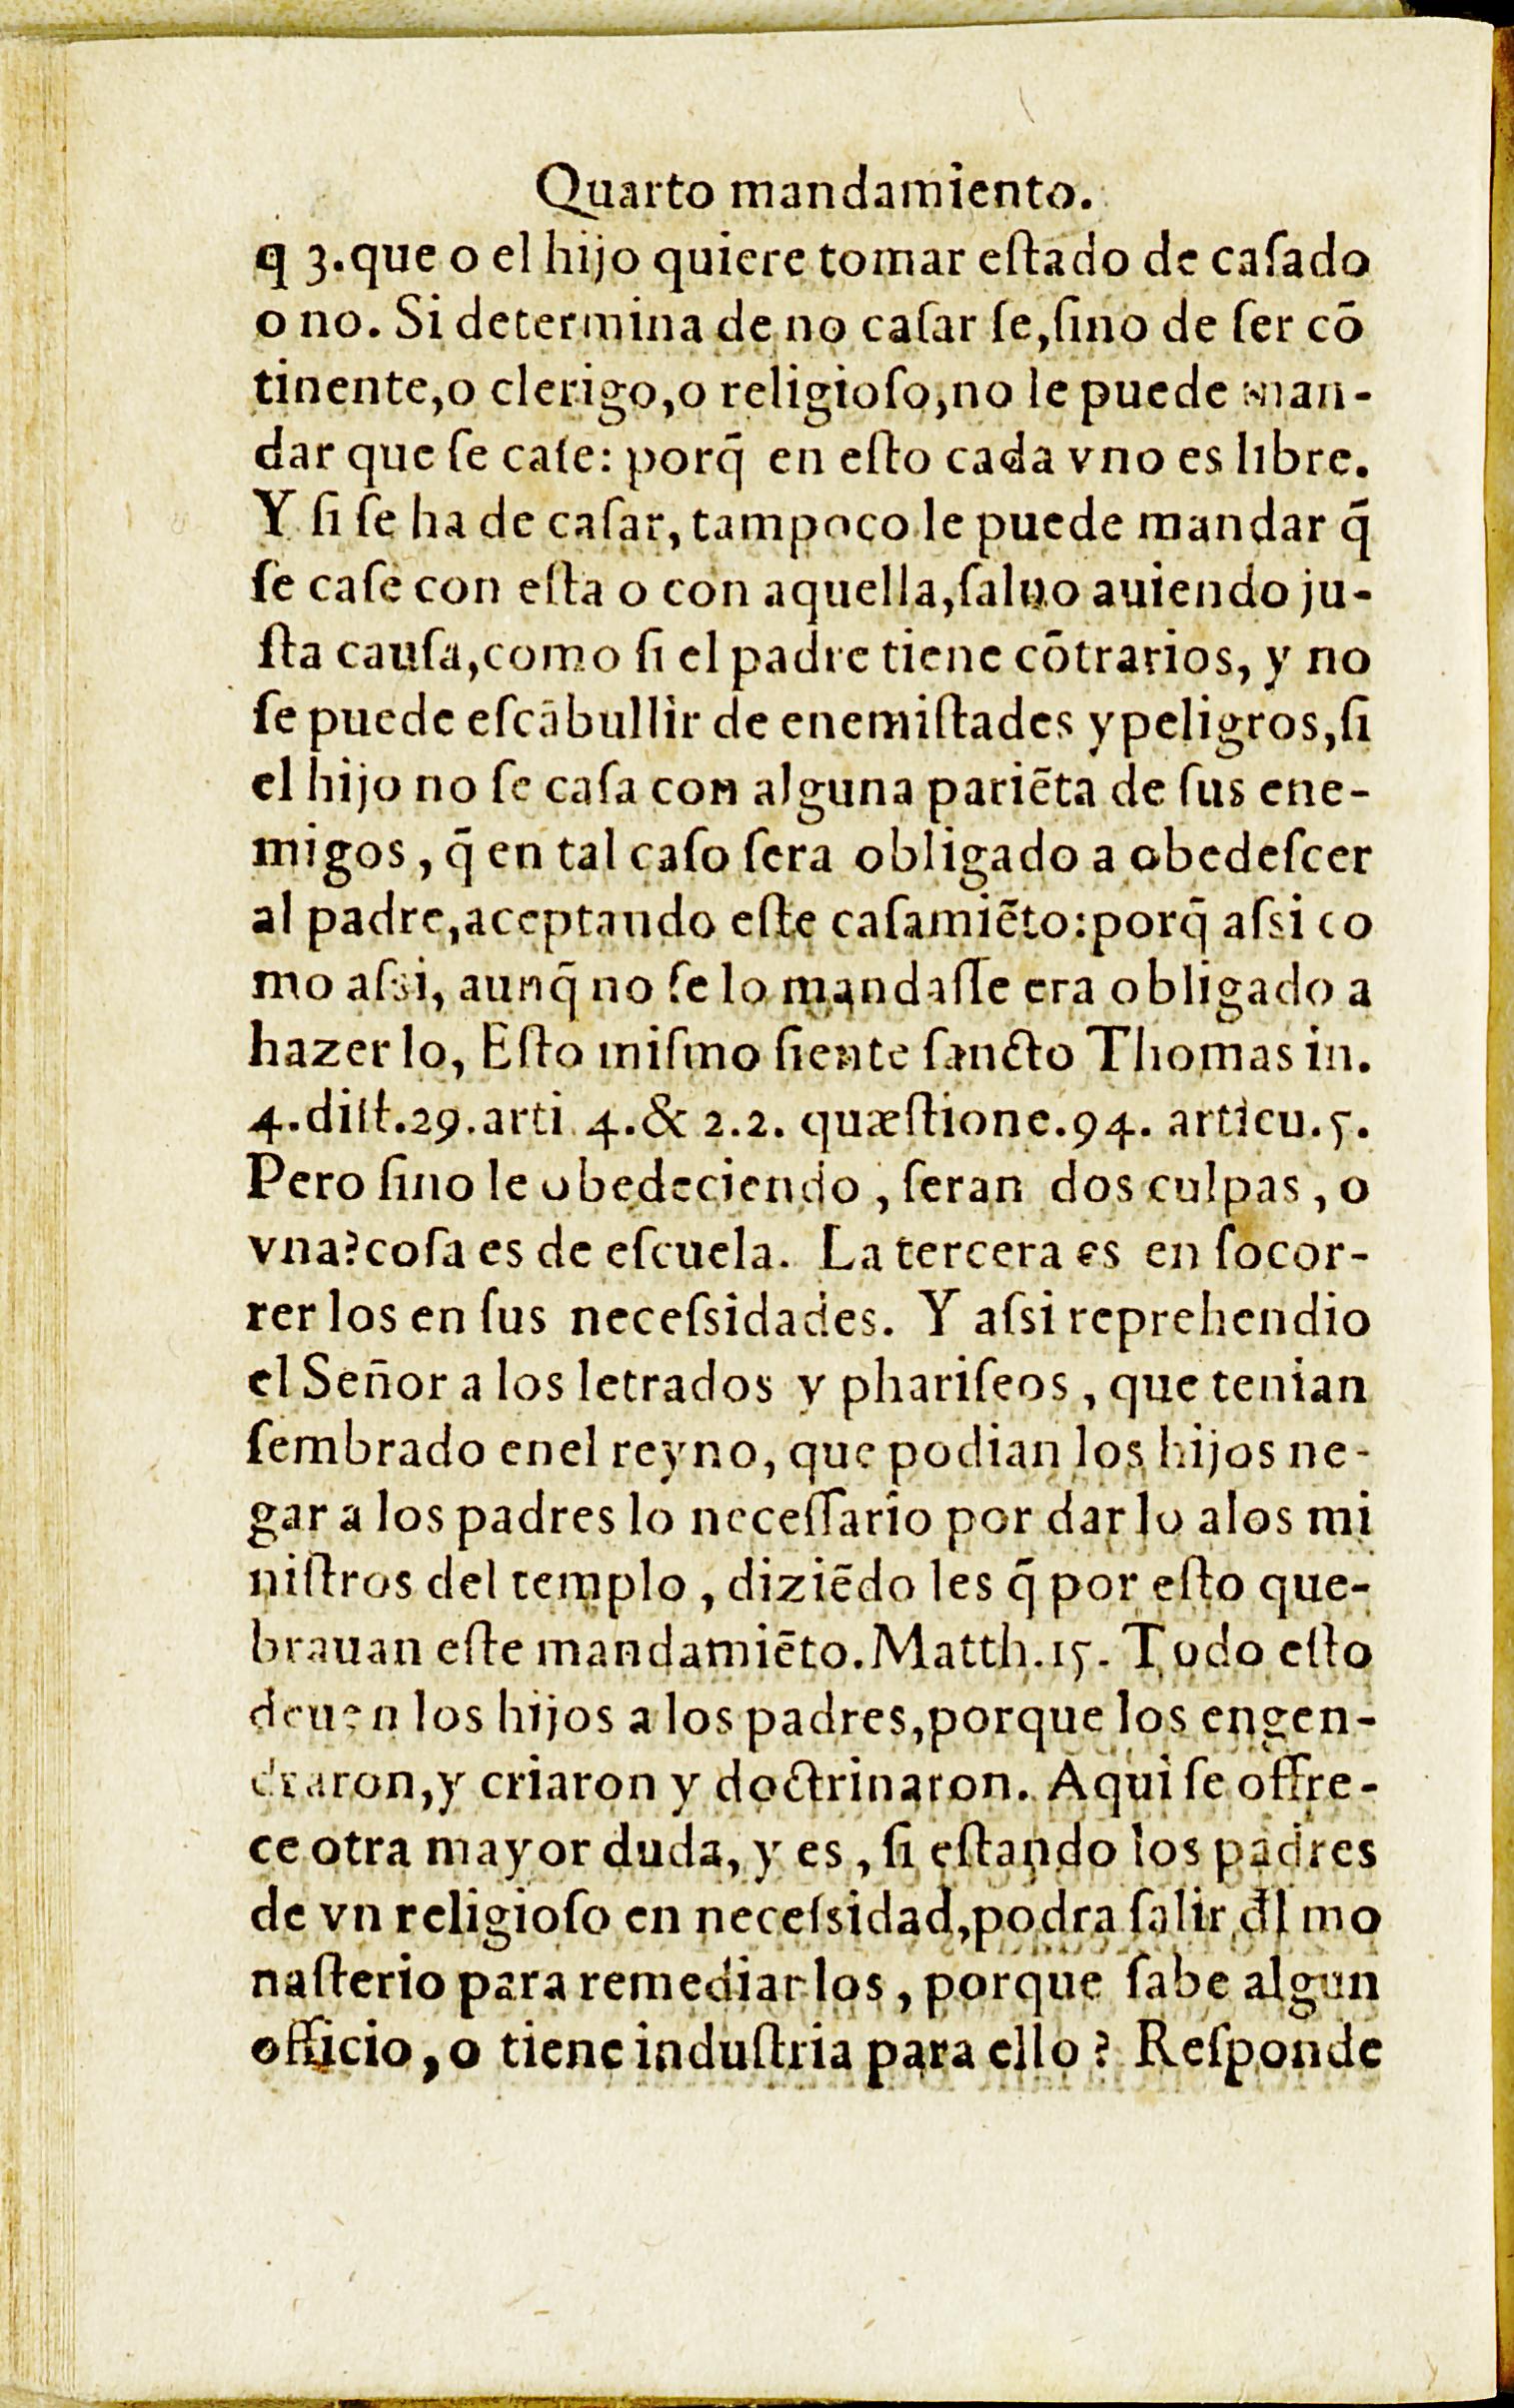 Quarto mandamiento.
q 3. que o el hijo quiere tomar eſtado de caſado
o no. Si determina de no caſar ſe, ſino de ſer cõ
tinente, o clerigo, o religioſo, no le puede man-
dar que ſe caſe: porq̃ en eſto cada vno es libre.
Y ſi ſe ha de caſar, tampoco le puede mandar q̃
ſe caſe con eſta o con aquella, ſaluo auiendo ju-
ſta cauſa, como ſi el padre tiene cõtrarios, y no
ſe puede eſcãbullir de enemiſtades y peligros, ſi
el hijo no ſe caſa con alguna pariẽta de ſus ene-
migos, q̃ en tal caſo ſera obligado a obedeſcer
al padre, aceptando eſte caſamiẽto: porq̃ aſsi co
mo aſsi, aunq̃ no ſe lo mandaſſe era obligado a
hazer lo, Eſto miſmo ſiente ſancto Thomas in.
4. diſt. 29. arti. 4. & 2. 2. quæſtione. 94. articu. 5.
Pero ſino le obedeciendo, ſeran dos culpas, o
vna? coſa es de eſcuela. La tercera es en ſocor-
rer los en ſus neceſsidades. Y aſsi reprehendio
el Señor a los letrados y phariſeos, que tenian
ſembrado enel reyno, que podian los hijos ne-
gar a los padres lo neceſſario por dar lo alos mi
niſtros del templo, diziẽdo les q̃ por eſto que-
brauan eſte mandamiẽto. Matth. 15. Todo eſto
deuen los hijos a los padres, porque los engen-
draron, y criaron y doctrinaron. Aqui ſe offre-
ce otra mayor duda, y es, ſi eſtando los padres
de vn religioſo en neceſsidad, podra ſalir đl mo
naſterio para remediar los, porque ſabe algun
officio, o tiene induſtria para ello? Reſponde